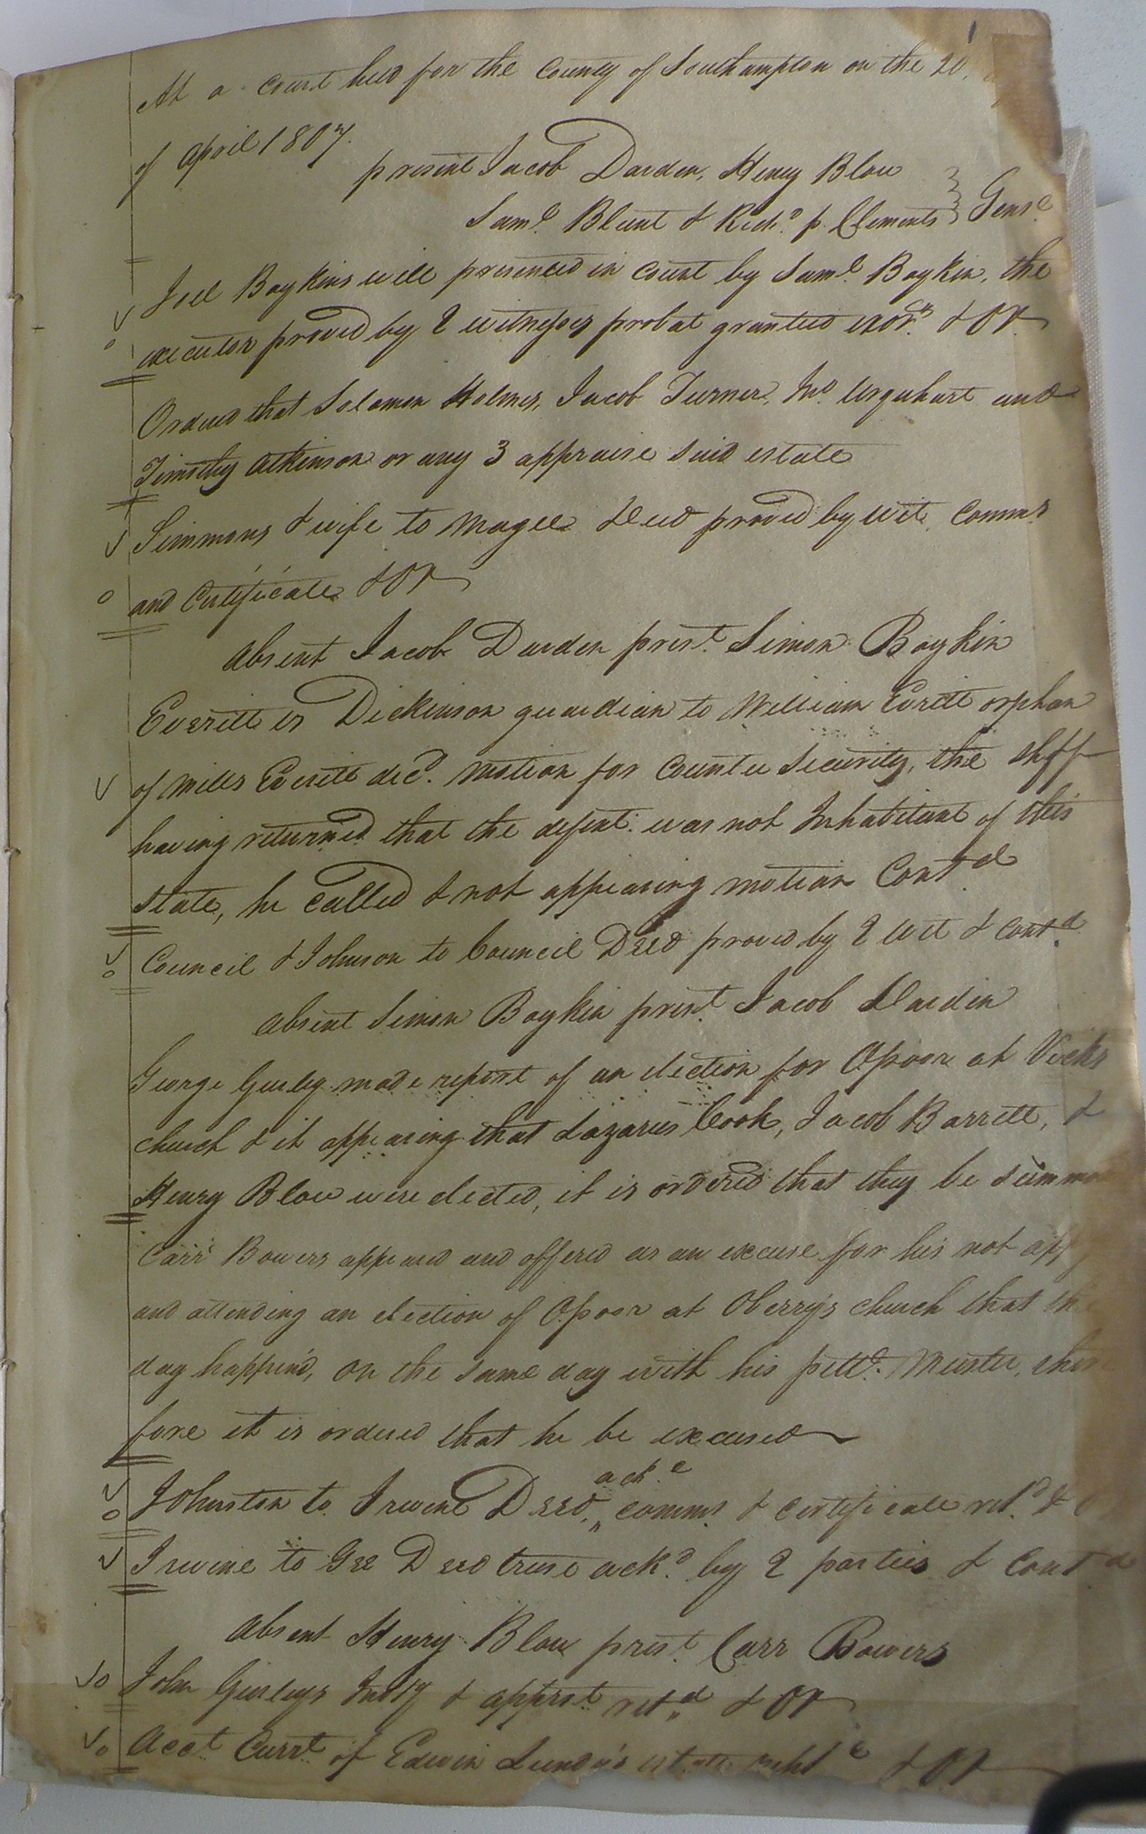 At a court held for the County of Southampton on the 20
of April 1807.
present Jacob Darden, Henry Blow
Saml. Blunt & Richd. p. Clements } Gent.
Joel Boykins will presented in court by Saml. Boykin, the
executor proved by 2 witnesses probat granted exor. & OR
Ordered that Solomon Holmes, Jacob Turner, Jno. Urquhart and
Timothy Atkinson or any 3 appraise said estate
Simmons & wife to Magee Deed proved by wit. Comms
and Certificate & OR
Absent Jacob Darden prest. Simon Boykin
Everitt vs Dickinson guardian to William Evritt orphan
of Mills Everitt decd. Motion for Counter Security, the Shff
having returned that the defent. was not Inhabitant of this
state, he called & not appearing motion Contd
Council & Johnson to Council Deed proved by 2 wit & Contd
Absent Simon Boykin prest. Jacob Darden
George Gurley made report of an election for Opoor at Vicks
church & it appearing that Lazarus Cook, Jacob Barrett, &
Henry Blow were elected, it is ordered that they be summo
Carr Bowers appeared and offered as an excuse for his not app
and attending an election of O.poor at Oberry's church that the
day happend, on the same day with his Muster, ther
fore it is ordered that he be excused
Johnston to Irvine Deed, ackd. comms. & certificate retd. & O
Irvine to Gee Deed trust ackd. by 2 parties & Contd
Absent Henry Blow prest. Carr Bowers
John Gurleys Invty & apprst retd & OR
Acct Currt. of Edwin Lundy's estate & OR